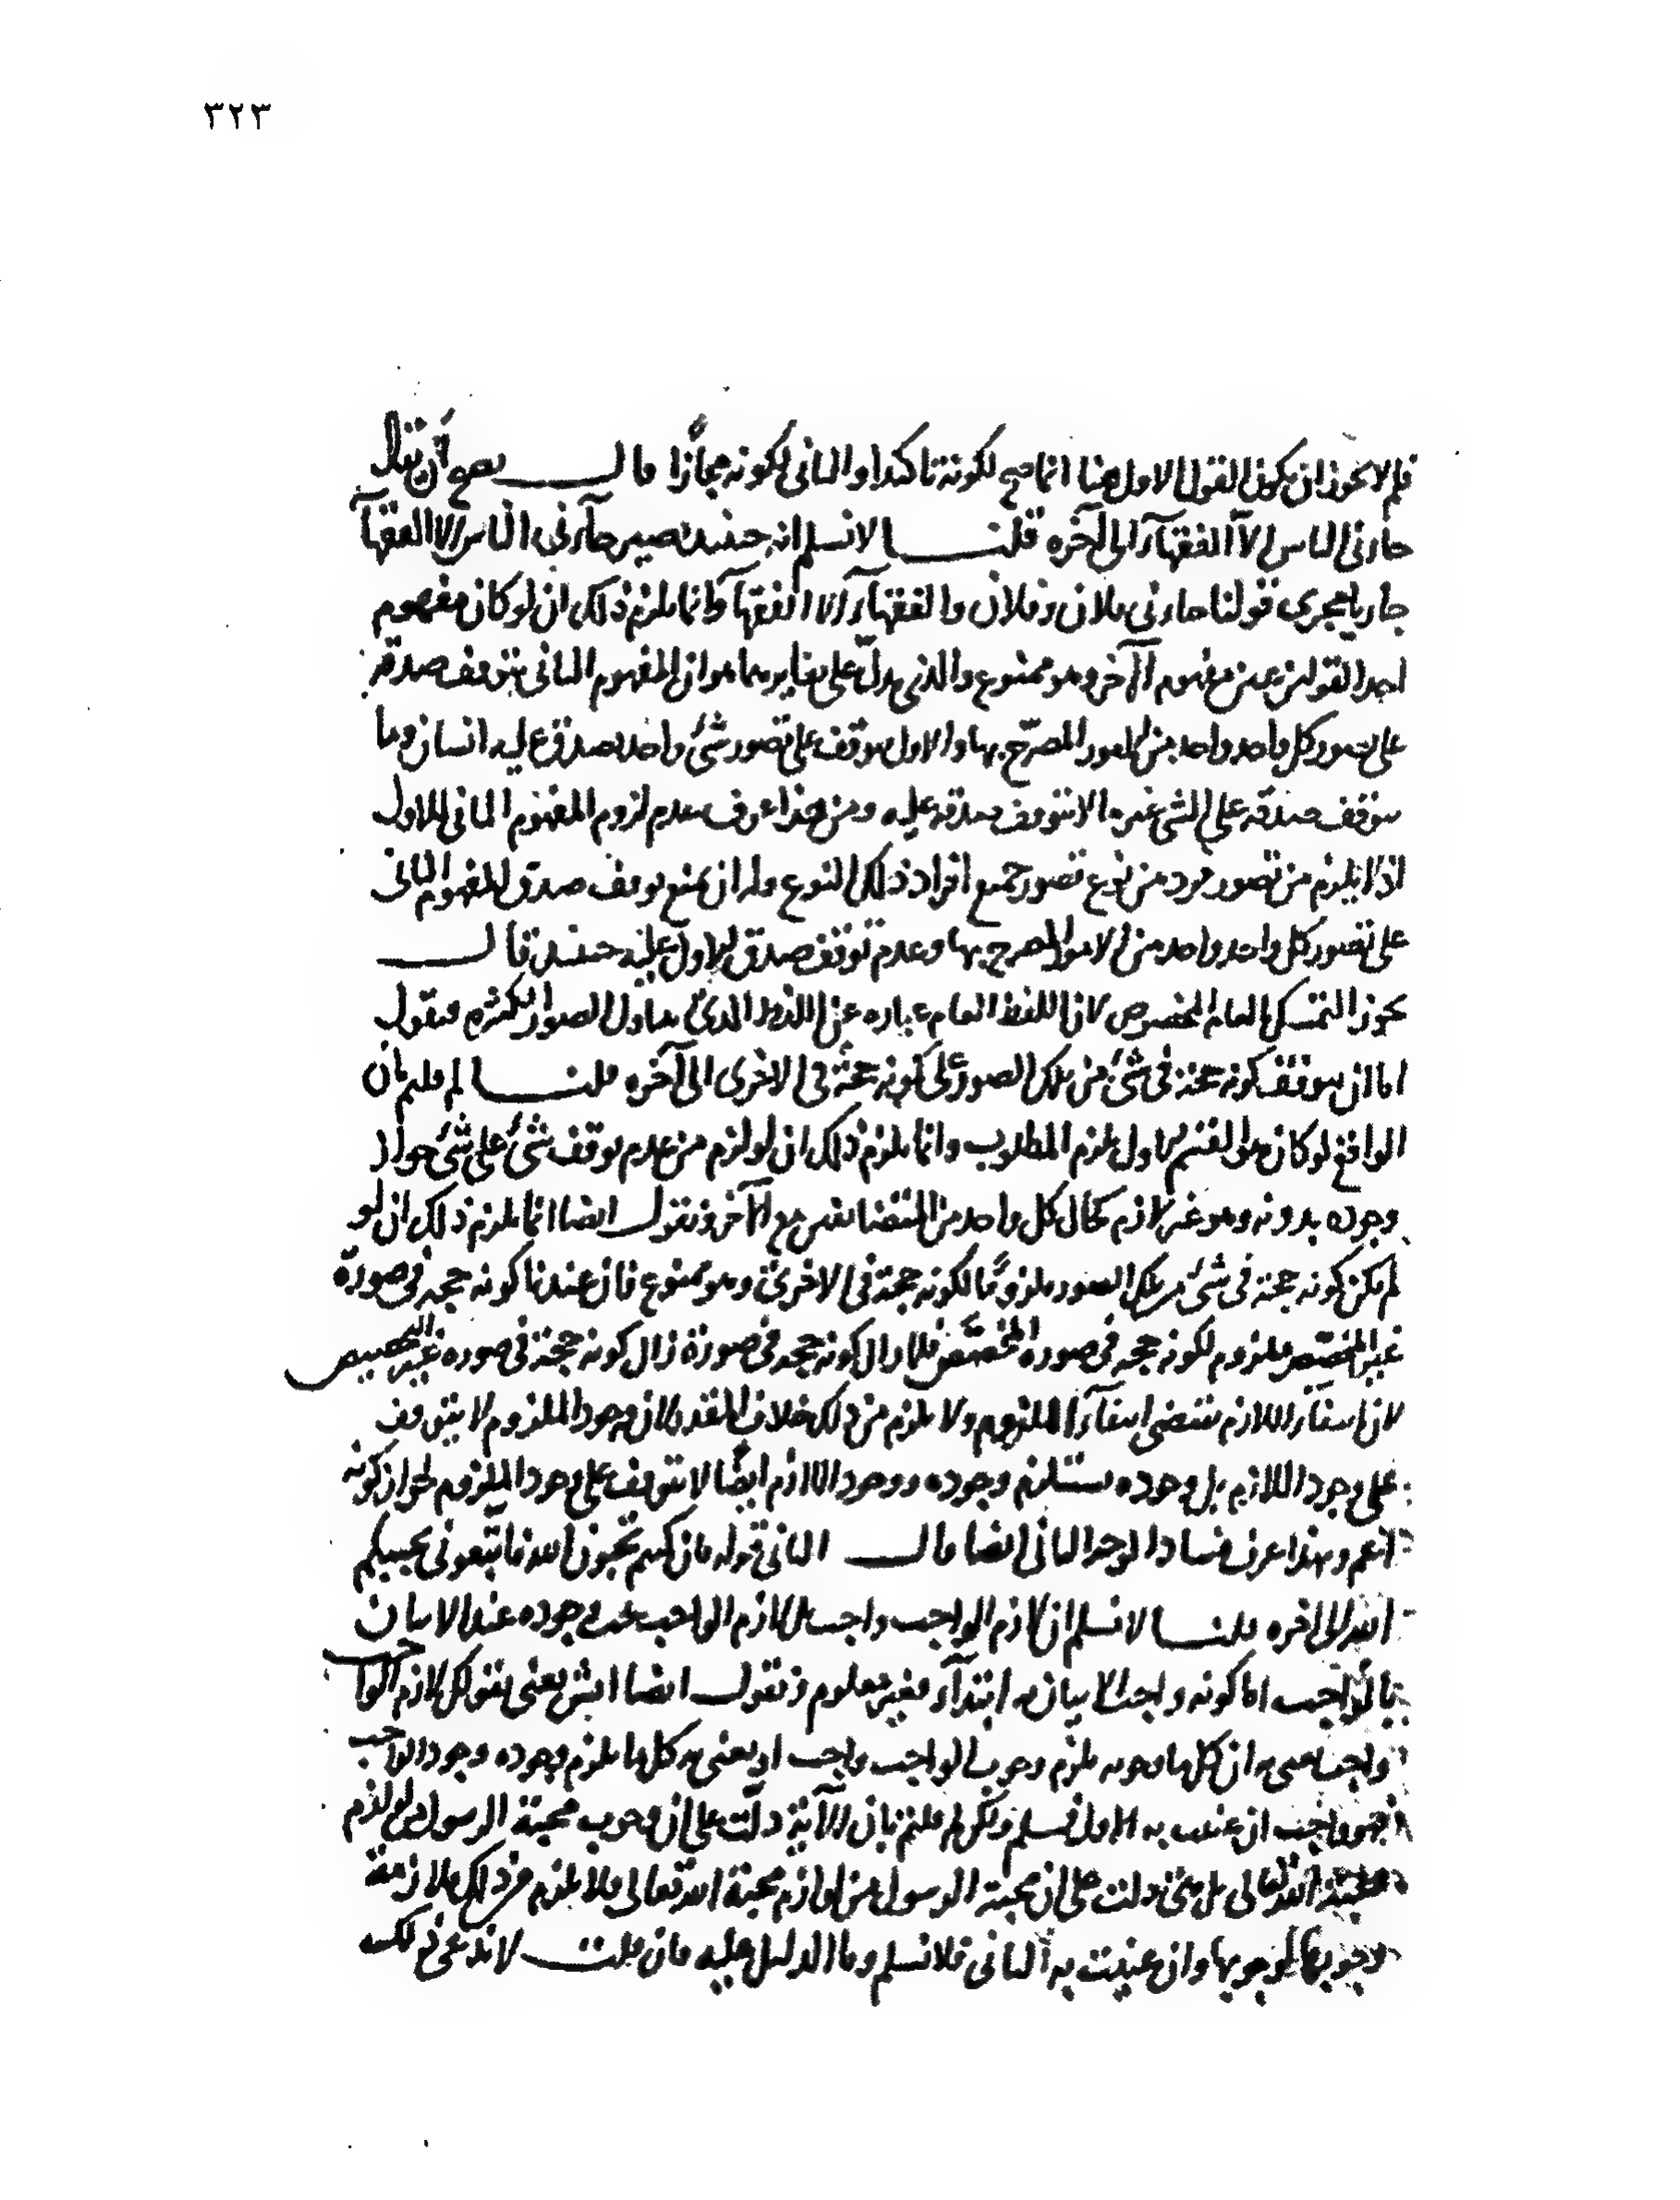 ٣٢٣
فلم لا يجوز ان يكون القول الاول هنا انما صح لكونه تاكيدا والثانى لكونه مجازا قال يصح ان يقال
جاءنى الناس الا الفقهاء الى آخره قلنا لا نسلم انه حينئذ يصير جاءنى الناس الا الفقهاء
جاريا مجرى قولنا جاءنى فلان وفلان والفقهاء الا الفقهاء وانما يلزم ذلك ان لو كان مفهوم
احد القولين عين مفهوم الآخر وهو ممنوع والذى يدل على تغايرهما هو ان المفهوم الثانى يتوقف صدقه
على تصور كل واحد واحد من الصور المصرح بها والاول يتوقف على تصور شئ واحد يصدق عليه انسان وما
يتوقف صدقه على الشئ غير ما لا يتوقف صدقه عليه ومن هذا عرف عدم لزوم المفهوم الثانى للاول
اذ لا يلزم من تصور فرد من نوع تصور جميع افراد ذلك النوع وله ان يمنع توقف صدق المفهوم الثانى
على تصور كل واحد واحد من الامور المصرح بها وعدم توقف صدق الاول عليه حينئذ قال
يجوز التمسك بالعام المخصوص لان اللفظ العام عبارة عن اللفظ الذى يتناول الصور الكثيرة فنقول
اما ان يتوقف كونه حجة فى شئ من تلك الصور على كونه حجة فى الاخرى الى آخره قلنا لم قلتم بان
الواقع لو كان هو القسم الاول يلزم المطلوب وانما يلزم ذلك ان لو لزم من عدم توقف شئ على شئ جواز
وجوده بدونه وهو غير لازم كحال كل واحد من المتضايفين مع الآخر ونقول ايضا انما يلزم ذلك ان لو
لم يكن كونه حجة فى شئ من تلك الصور ملزوما لكونه حجة فى الاخرى وهو ممنوع فان عندنا كونه حجة فى صورة
غير المخصص ملزوم لكونه حجة فى صورة المخصص فلما زال كونه حجة فى صورة زال كونه حجة فى صورة غير التخصيص
لان انتفاء اللازم يقتضى انتفاء الملزوم ولا يلزم من ذلك خلاف المقدر لان وجود الملزوم لا يتوقف
على وجود اللازم بل وجوده يستلزم وجوده ووجود اللازم ايضا لا يتوقف على وجود الملزوم لجواز كونه
اعم وبهذا عرف فساد الوجه الثانى ايضا قال الثانى قوله فان كنتم تحبون الله فاتبعونى يحببكم
الله الى آخره قلنا لا نسلم ان لازم الواجب واجب بل لازم الواجب يجب وجوده عند الاتيان
بالواجب اما كونه واجب الاتيان به ابتداء فغير معلوم ونقول ايضا ايش يعنى بقولك لازم الواجب
واجب يعنى به ان كل ما وجوبه يلزم وجوب الواجب واجب او يعنى به كل ما يلزم وجوده وجود الواجب
فهو واجب ان عنيت به الاول فمسلم ولكن لم قلتم بان الآية دلت على ان وجوب محبة الرسول من لوازم
محبة الله تعالى بل دلت على ان محبة الرسول من لوازم محبة الله تعالى فلا يلزم من ذلك ملازمة
وجوبها لوجوبها وان عنيت به الثانى فلا نسلم وما الدليل عليه فان قلت لا ندعى ذلك